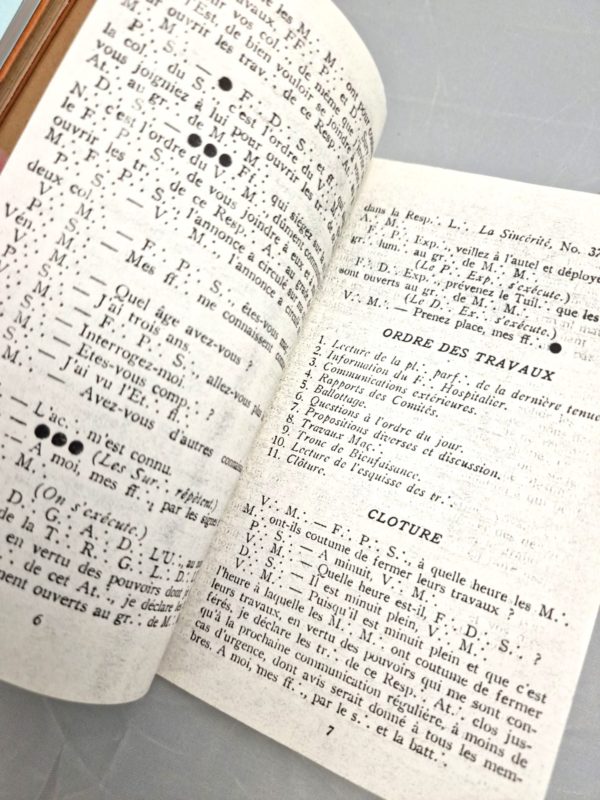 les M∴ M∴
travaux, FF∴ P∴ ont
sur vos col∴ de même que
l'Est, de bien vouloir se joindre
M∴ ouvrir les trav∴ de ce Resp∴
P∴ S∴ — ● F∴ D∴ S∴, et ff∴
la col∴ du S∴, c'est l'ordre du V∴
At∴ au gr∴ de M∴ M∴
vous joigniez à lui pour ouvrir les tr∴
D∴ S∴ — ●●● FF∴ qui siégez sur
N∴ c'est l'ordre du V∴ M∴, dûment
le F∴ P∴ S∴, de vous joindre à eux
ouvrir les tr∴ de ce Resp∴ A∴ au gr
M∴ F∴ P∴ S∴, l'annonce a circulé sur
deux col∴
P∴ S∴ — V∴ M∴, l'annonce a circulé
V∴ M∴ — F∴ P∴ S∴, êtes-vous
P∴ S∴ — Mes ff∴ me connaissent
Vén∴
V∴ M∴ — Quel âge avez-vous ?
P∴ S∴ — J'ai trois ans.
V∴ M∴ — F∴ P∴ S∴, allez-vous plus
S∴ — Interrogez-moi.
M∴ — Etes-vous comp∴ ?
S∴ — J'ai vu l'Et∴ fl∴
M∴ — Avez-vous d'autres
— L'ac∴ m'est connu.
— ●●● (Les Sur∴ répètent.)
— A moi, mes ff∴, par les signe
M∴
(On s'exécute.)
D∴ G∴ A∴ D∴ L'U∴, au
de la T∴ R∴ G∴ L∴ D∴
en vertu des pouvoirs dont
∴ de cet At∴, je déclare les
ment ouverts au gr∴ de M∴
6
dans la Resp∴ L∴ La Sincérité, No. 37
A∴ M∴
F∴ P∴ Exp∴, veillez à l'autel et déployez
gr∴ lum∴ au gr∴ de M∴ M∴
(Le P∴ Exp∴ s'exécute.)
F∴ D∴ Exp∴, prévenez le Tuil∴ que les
sont ouverts au gr∴ de M∴ M∴
(Le D∴ Ex∴ s'exécute.)
V∴ M∴ — Prenez place, mes ff∴ ●
ORDRE DES TRAVAUX
1. Lecture de la pl∴ parf∴ de la dernière tenue
2. Information du F∴ Hospitalier.
3. Communications extérieures.
4. Rapports des Comités.
5. Ballottage.
6. Questions à l'ordre du jour.
7. Propositions diverses et discussion.
8. Travaux Maç∴
9. Tronc de Bienfaisance.
10. Lecture de l'esquisse des tr∴
11. Clôture.
CLOTURE
V∴ M∴ — F∴ P∴ S∴, à quelle heure les M∴
M∴ ont-ils coutume de fermer leurs travaux ?
P∴ S∴ — A minuit, V∴ M∴
V∴ M∴ — Quelle heure est-il, F∴ D∴ S∴ ?
D∴ S∴ — Il est minuit plein, V∴ M∴
V∴ M∴ — Puisqu'il est minuit plein et que c'est
l'heure à laquelle les M∴ M∴ ont coutume de fermer
leurs travaux, en vertu des pouvoirs qui me sont con-
férés, je déclare les tr∴ de ce Resp∴ At∴ clos jus-
qu'à la prochaine communication régulière, à moins de
cas d'urgence, dont avis serait donné à tous les mem-
bres. A moi, mes ff∴, par le s∴ et la batt∴
7